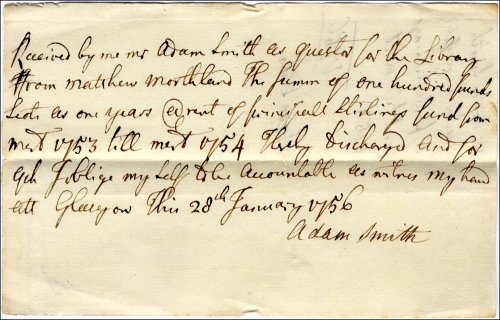 Received by me mr Adam Smith as questor for the Library
From matthew morthland The summ of one hundred punds
Scots as one years @rent of prinicpall Stirlings fund from
mert 1753 till mert 1754 Hereby Discharged And for
qch I oblige my self to be Accountable as witnes my hand
att Glasgow This 28th January 1756
Adam Smith